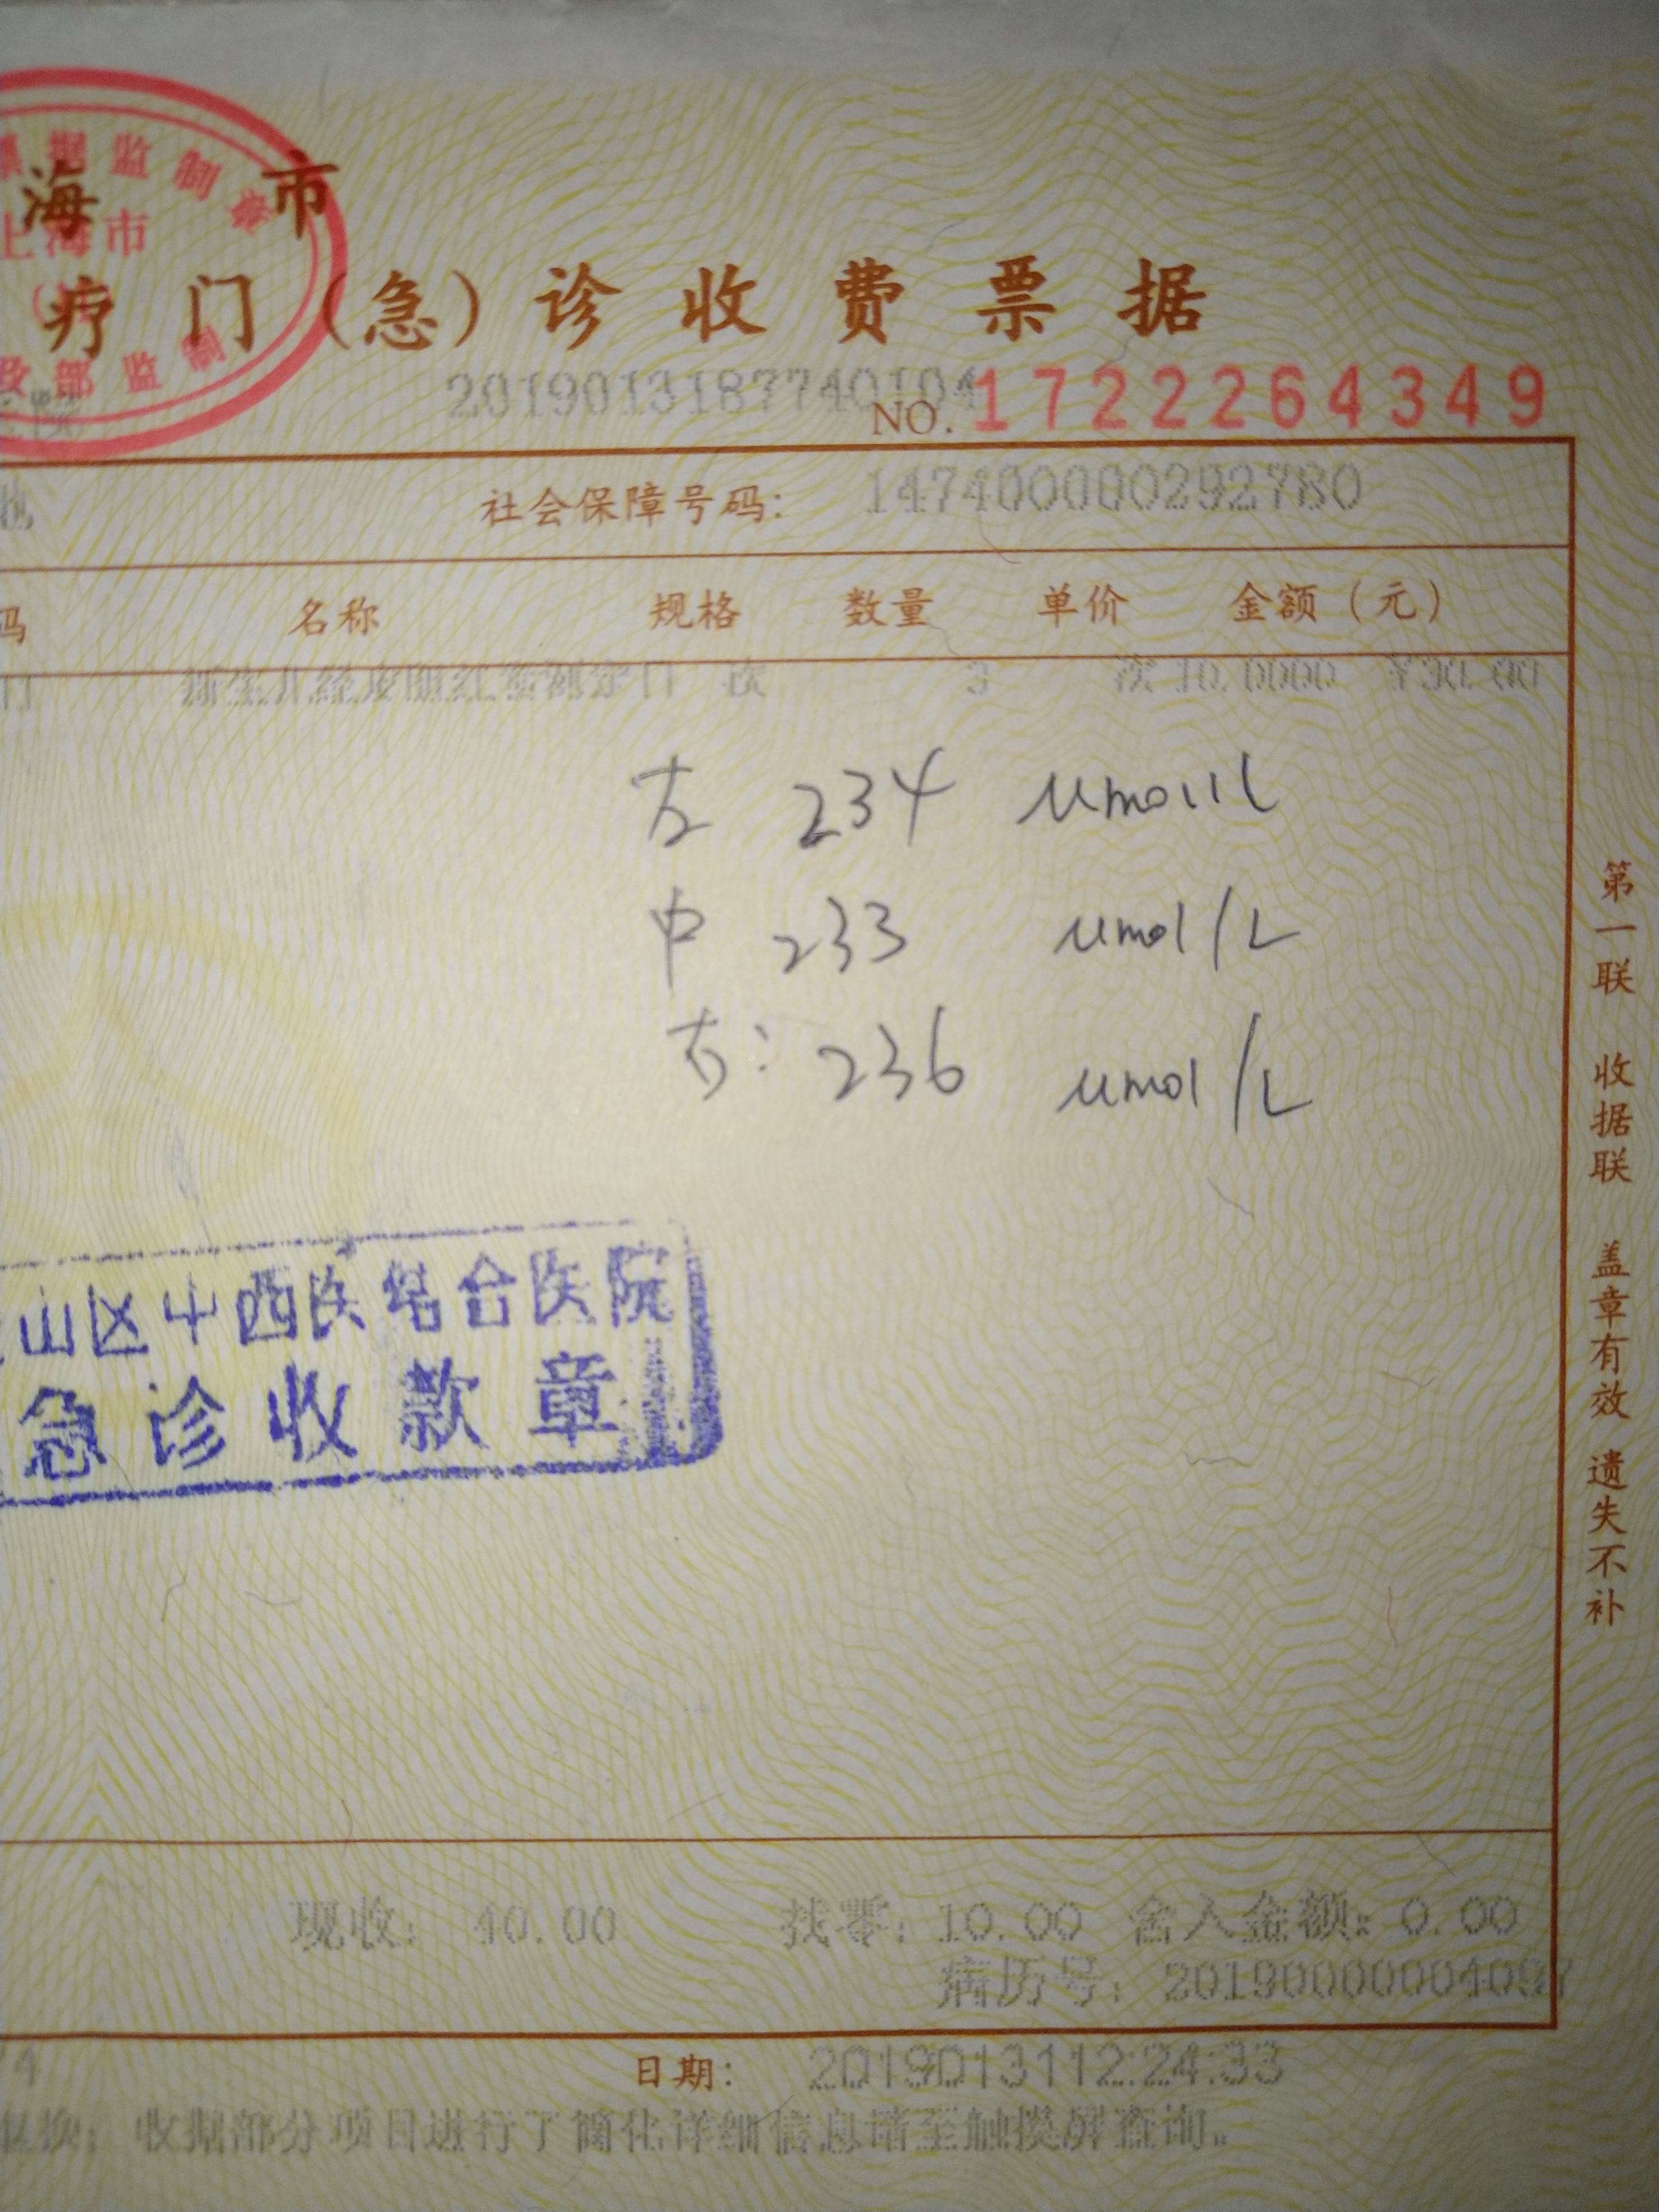 票据监制章
海 市
上海市
疗 门 (急) 诊 收 费 票 据
部监制
2019013187740104
NO. 1722264349
社会保障号码: 1474000000292780
码 名称 规格 数量 单价 金额（元）
门 新生儿经皮胆红素测定门 次 3 次 10.0000 ¥30.00
左 234 μmol/L
中 233 μmol/L
右: 236 μmol/L
山区中西医结合医院
急诊收款章
第一联 收据联 盖章有效 遗失不补
现收: 40.00 找零: 10.00 舍入金额: 0.00
病历号: 20190000004097
4 日期: 2019013112:24:33
收据部分项目进行了简化详细信息请至触摸屏查询。